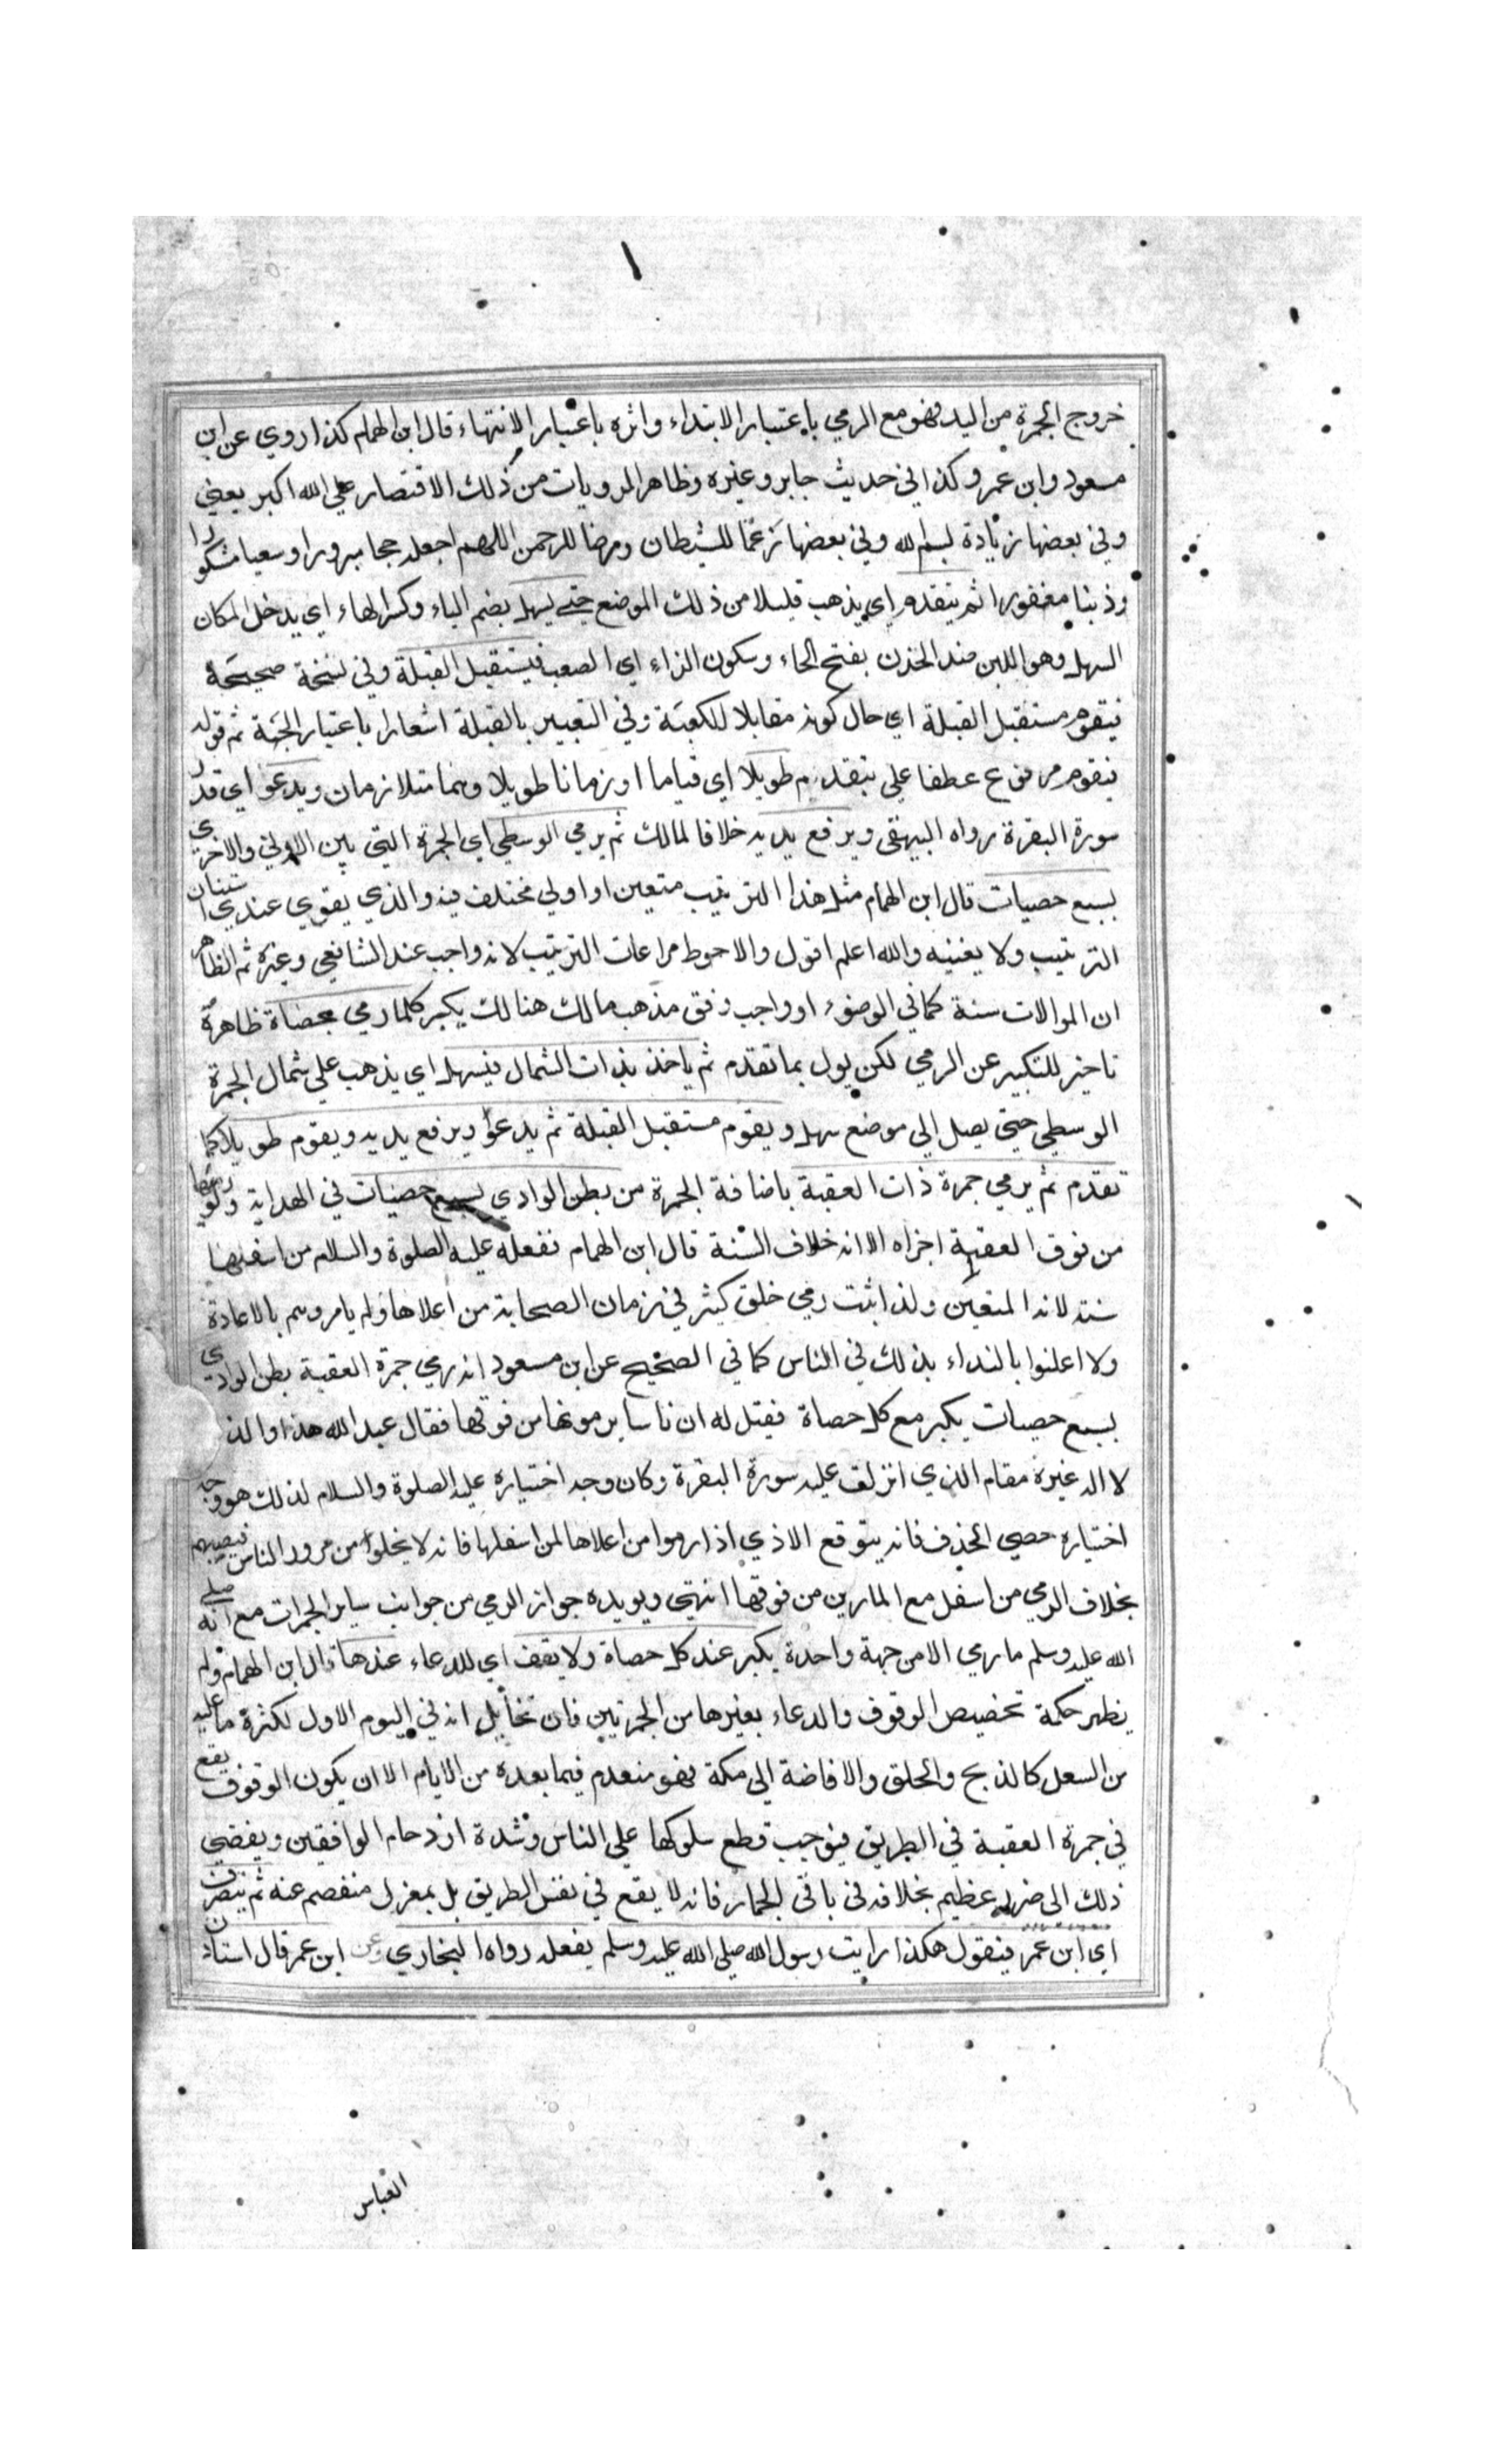 خروج الجمرة من اليد فهو مع الرمي باعتبار الابتداء واثره باعتبار الانتهاء قال ابن الهمام كذا روي عن ابن
مسعود وابن عمر وكذا في حديث جابر وغيره وظاهر المرويات من ذلك الاقتصار علي الله اكبر يعني
وفي بعضها زيادة بسم الله وفي بعضها زعما للشيطان ورضا للرحمن اللهم اجعله حجا مبرورا وسعيا مشكورا
وذنبا مغفورا ثم يتقدم اي يذهب قليلا من ذلك الموضع حتي يسهل بضم الياء وكسر الهاء اي يدخل المكان
السهل وهو اللين ضد الحزن بفتح الحاء وسكون الزاء اي الصعب فيستقبل القبلة وفي نسخة صحيحة
فيقوم مستقبل القبلة اي حال كونه مقابلا للكعبة وفي التعبير بالقبلة اشعارا باعتبار الجهة ثم قوله
فيقوم مرفوع عطفا علي يتقدم طويلا اي قياما او زمانا طويلا وهما متلازمان ويدعو اي قدر
سورة البقرة رواه البيهقي ويرفع يديه خلافا لمالك ثم يرمي الوسطي اي الجمرة التي بين الاولي والاخري
بسبع حصيات قال ابن الهمام مثل هذا الترتيب متعين او اولي مختلف فيه والذي يقوي عندي استنان
الترتيب ولا يعنيه والله اعلم اقول والاحوط مراعات الترتيب لانه واجب عند الشافعي وغيره ثم الظاهر
ان الموالات سنة كما في الوضوء او واجب وفق مذهب مالك هنالك يكبر كلما رمي بحصاة ظاهره
تاخير للتكبير عن الرمي لكن يول بما تقدم ثم ياخذ بذات الشمال فيسهل اي يذهب علي شمال الجمرة
الوسطي حتي يصل الي موضع سهل ويقوم مستقبل القبلة ثم يدعو ويرفع يديه ويقوم طويلا كما
تقدم ثم يرمي جمرة ذات العقبة باضافة الجمرة من بطن الوادي بسبع حصيات في الهداية ولو رماها
من فوق العقبة اجزاه الا انه خلاف السنة قال ابن الهمام ففعله عليه الصلوة والسلام من اسفلها
سنة لانه المتعين ولذا ثبت رمي خلق كثير في زمان الصحابة من اعلاها ولم يامروهم بالاعادة
ولا اعلنوا بالنداء بذلك في الناس كما في الصحيح عن ابن مسعود انه رمي جمرة العقبة بطن الوادي
بسبع حصيات يكبر مع كل حصاة فقيل له ان ناسا يرمونها من فوقها فقال عبد الله هذا والذ
لا اله غيره مقام الذي انزلت عليه سورة البقرة وكان وجه اختياره عليه الصلوة والسلام لذلك هو وجه
اختياره حصي الخذف فانه يتوقع الاذي اذا رموا من اعلاها لمن اسفلها فانه لا يخلوا من مرور الناس فيصيبهم
بخلاف الرمي من اسفل مع المارين من فوقها انتهي ويويده جواز الرمي من جوانب ساير الجمرات مع انه صلي
الله عليه وسلم ما رمي الا من جهة واحدة يكبر عند كل حصاة ولا يقف اي للدعاء عندها قال ابن الهمام ولم
يظهر حكمة تخصيص الوقوف والدعاء بغيرها من الجمرتين فان تخايل انه في اليوم الاول لكثرة ما عليه
من السعل كالذبح والحلق والافاضة الي مكة فهو منعدم فيما بعده من الايام الا ان يكون الوقوف يقع
في جمرة العقبة في الطريق فيوجب قطع سلوكها علي الناس وشدة ازدحام الواقفين ويفضي
ذلك الي ضرر عظيم بخلافه في باقي الجمار فانه لا يقع في نفس الطريق بل بمعزل منفصم عنه ثم ينصرف
اي ابن عمر فيقول هكذا رايت رسول الله صلي الله عليه وسلم يفعله رواه البخاري وعن ابن عمر قال استاذن
العباس